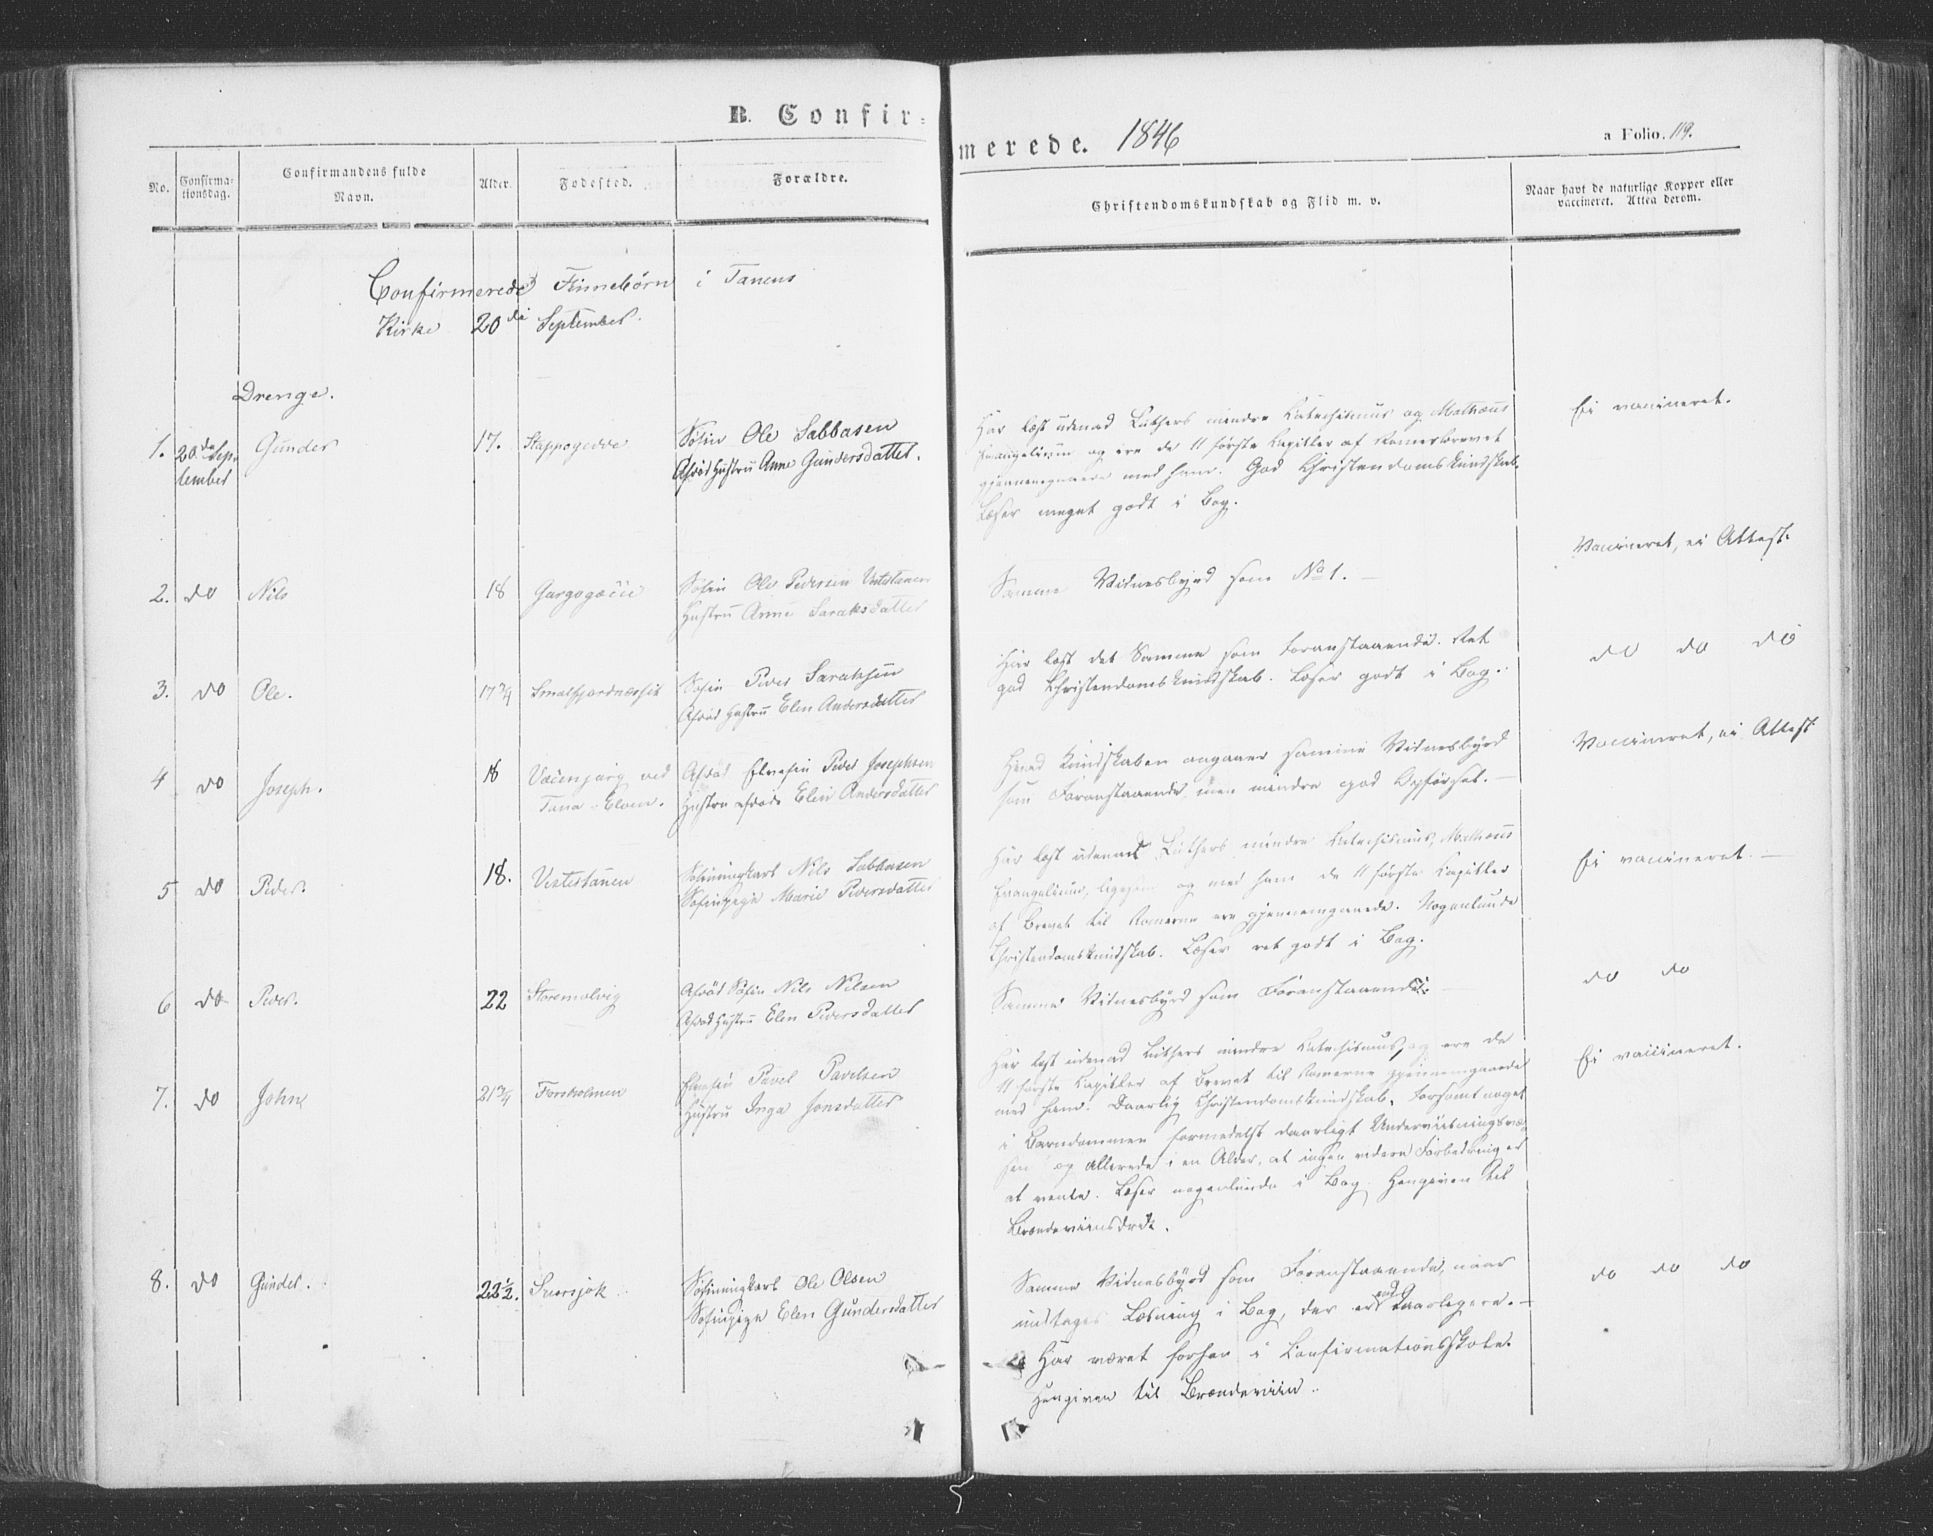 B. Confir-
merede. 1846
a Folio. 119.
No.
Confirma-
tionsdag.
Confirmandens fulde
Navn.
Alder.
Fødested.
Forældre.
Christendomskundskab og Flid m. v.
Naar havt de naturlige Kopper eller
vaccineret. Attest derom.
Confirmerede Finnebörn i Tanens
Kirke 20de September.
Drenge.
1. 20de Sep-
tember
Gunder
17.
Stappogedde
Søfin Ole Sabbasen
Afdöd Hustru Anne Gundersdatter.
Har læst udenad Luthers mindre Katechismus og Mathæus
Evangelium og ere de 11 förste Kapitler af Romerbrevet
gjennemgaaede med ham. God Christendomskundskab.
Læser meget godt i Bog.
Ei vaccineret.
2. do
Nils
18
Gargogæcie
Søfin Ole Pedersen Vestertanen
Hustru Anne Saraksdatter
Samme Vidnesbyrd som No 1. -
Vaccineret, ei Attest.
3. do
Ole.
17 3/4
Smalfjordnæsset
Søfin Peder Saraksen
Afdöd Hustru Elen Andersdatter
Har læst det Samme som Foranstaaende. Ret
god Christendomskundskab. Læser godt i Bog.
do do do
4 do
Joseph.
18
Vacenjarg ved
Tana-Elven.
Afdöd Elvefin Peder Josephsen
Hustru afdöde Elen Andersdatter
Hvad Kundskaben angaaer samme Vidnesbyrd
som Foranstaaende, men mindre god Opförsel. -
Vaccineret, ei Attest
5 do
Peder.
18.
Vestertanen
Söfinungkarl Nils Sabbasen
Söfinpige Marie Pedersdatter
Har læst udenad Luthers mindre Katechismus, Mathæus
Evangelium, ligesom og med ham de 11 förste Kapitler
af Brevet til Romerne ere gjennemgaaede. Nogenlunde
Christendomskundskab. Læser ret godt i Bog.
Ei vaccineret. -
6 do
Peder.
22
Storemolvig
Afdöd Söfin Nils Nilsen
Afdöd Hustru Elen Pedersdatter
Samme Vidnesbyrd som Foranstaaende. -
do do
7. do
John
21 3/4
Forsholmen
Elvefin Pavel Pavelsen
Hustru Inga Jonsdatter
Har læst udenad Luthers mindre Katechismus, og ere de
11 förste Kapitler af Brevet til Romerne gjennemgaaede
med ham. Daarlig Christendomskundskab. Forsömt noget
i Barndommen formedelst daarligt Underviisningsvæ-
sen og allerede i en Alder, at ingen videre Forbedring er
at vente. Læser nogenlunde i Bog. Hengiven til
Brændeviinsdrik.
Ei vaccineret.
8. do
Gunder.
22 1/2.
Søfinungkarl Ole Olsen
Søfinpige Elen Gundersdatter
Samme Vidnesbyrd som Foranstaaende, naar
undtages Læsning i Bog, der er endog daarligere. -
Har været forhen i Confirmationsskole.
Hengiven til Brændeviin.
do do do